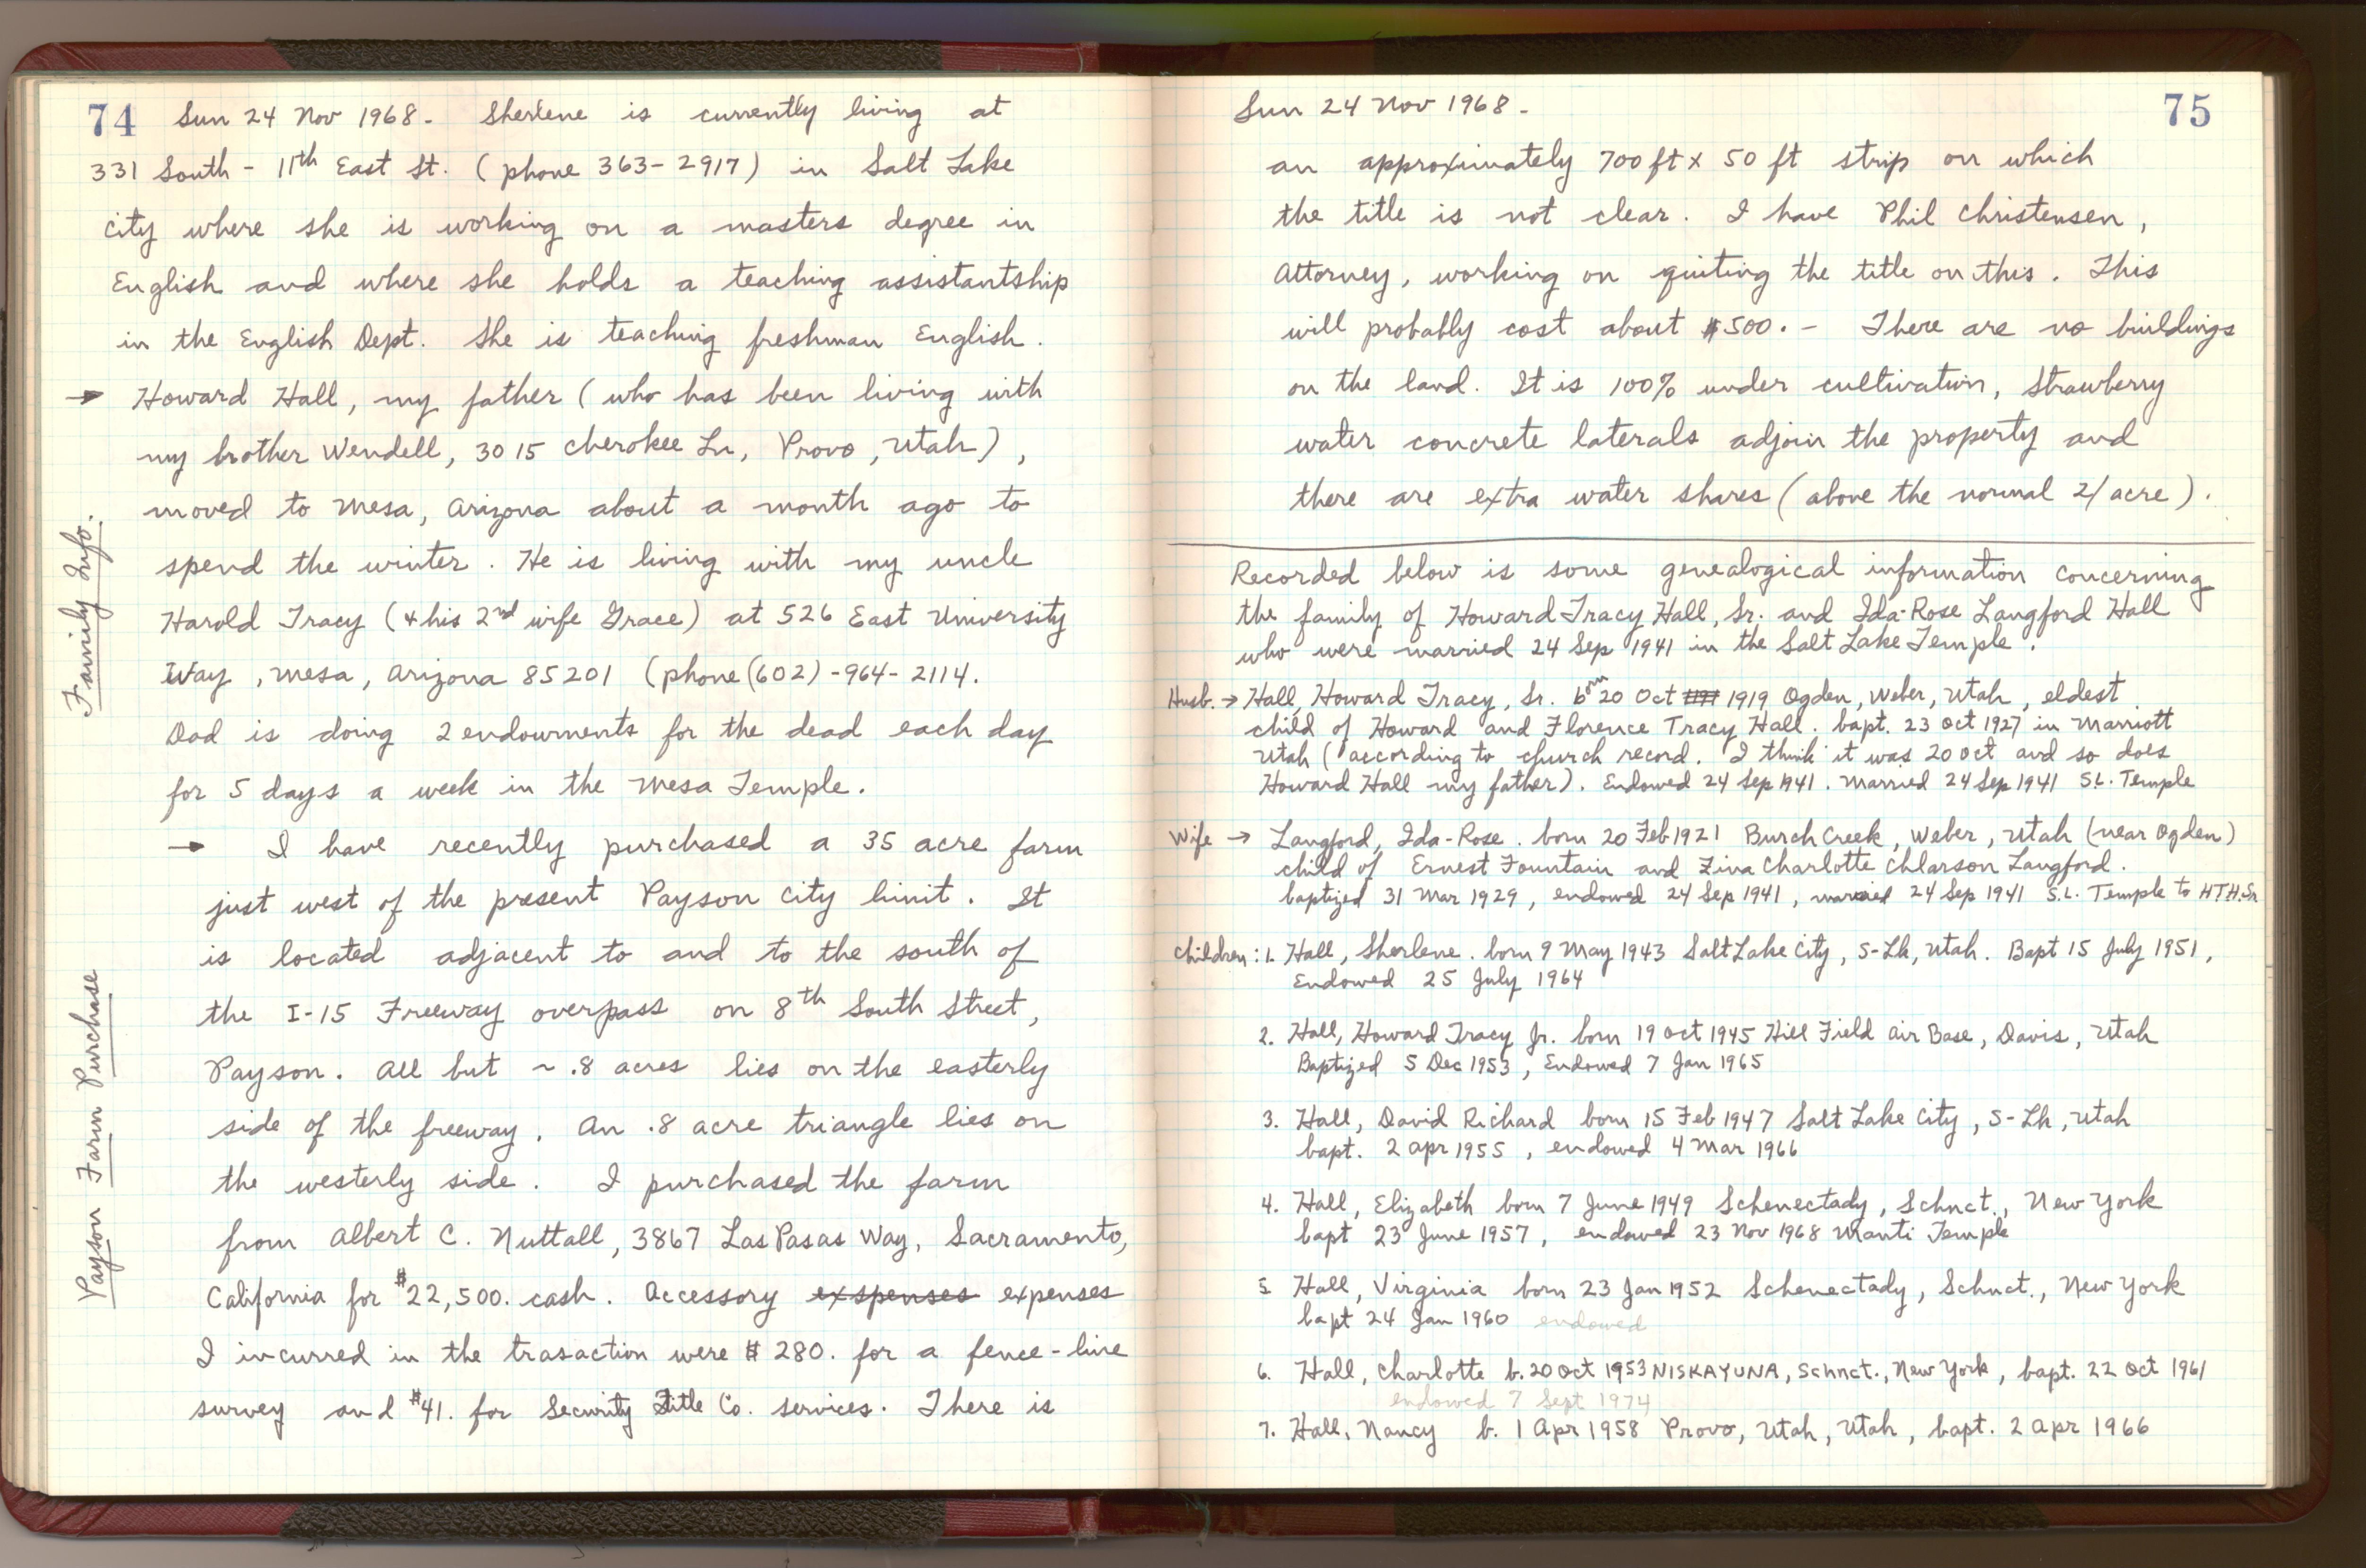 74 Sun 24 Nov 1968 - Sherlene is currently living at
331 South - 11th East St. (phone 363-2917) in Salt Lake
City where she is working on a masters degree in
English and where she holds a teaching assistantship
in the English Dept. She is teaching freshman English.
→ Howard Hall, my father (who has been living with
my brother Wendell, 3015 Cherokee Ln, Provo, Utah),
moved to Mesa, Arizona about a month ago to
spend the winter. He is living with my uncle
Harold Tracy (& his 2nd wife Grace) at 526 East University
Way, Mesa, Arizona 85201 (phone (602)-964-2114.
Dad is doing 2 endowments for the dead each day
for 5 days a week in the Mesa Temple.
Family Info.
→ I have recently purchased a 35 acre farm
just west of the present Payson City limit. It
is located adjacent to and to the south of
the I-15 Freeway overpass on 8th South Street,
Payson. All but ~ .8 acres lies on the easterly
side of the freeway. An .8 acre triangle lies on
the westerly side. I purchased the farm
from Albert C. Nuttall, 3867 Las Pasas Way, Sacramento,
California for $22,500. cash. Accessory exspenses expenses
I incurred in the trasaction were $280. for a fence-line
survey and $41. for Security Title Co. services. There is
Payson Farm Purchase
Sun 24 Nov 1968 - 75
an approximately 700 ft x 50 ft strip on which
the title is not clear. I have Phil Christensen,
Attorney, working on quiting the title on this. This
will probably cost about $500. - There are no buildings
on the land. It is 100% under cultivation, Strawberry
water concrete laterals adjoin the property and
there are extra water shares (above the normal 2/acre).
Recorded below is some genealogical information concerning
the family of Howard Tracy Hall, Sr. and Ida-Rose Langford Hall
who were married 24 Sep 1941 in the Salt Lake Temple.
Husb. → Hall, Howard Tracy, Sr. born 20 Oct 1919 Ogden, Weber, Utah, eldest
child of Howard and Florence Tracy Hall. bapt. 23 Oct 1927 in Marriott
Utah (according to church record. I think it was 20 Oct and so does
Howard Hall my father). Endowed 24 Sep 1941. Married 24 Sep 1941 S.L. Temple
Wife → Langford, Ida-Rose. born 20 Feb 1921 Burch Creek, Weber, Utah (near Ogden)
child of Ernest Fountain and Zina Charlotte Chlarson Langford.
baptized 31 Mar 1929, endowed 24 Sep 1941, married 24 Sep 1941 S.L. Temple to HTH.Sr
Children: 1. Hall, Sherlene. born 9 May 1943 Salt Lake City, S-Lk, Utah. Bapt 15 July 1951,
Endowed 25 July 1964
2. Hall, Howard Tracy Jr. born 19 Oct 1945 Hill Field Air Base, Davis, Utah
Baptized 5 Dec 1953, Endowed 7 Jan 1965
3. Hall, David Richard born 15 Feb 1947 Salt Lake City, S-Lk, Utah
bapt. 2 Apr 1955, endowed 4 Mar 1966
4. Hall, Elizabeth born 7 June 1949 Schenectady, Schnct., New York
bapt 23 June 1957, endowed 23 Nov 1968 Manti Temple
5 Hall, Virginia born 23 Jan 1952 Schenectady, Schnct., New York
bapt 24 Jan 1960 endowed
6. Hall, Charlotte b. 20 Oct 1953 NISKAYUNA, Schnct., New York, bapt. 22 Oct 1961
endowed 7 Sept 1974
7. Hall, Nancy b. 1 Apr 1958 Provo, Utah, Utah, bapt. 2 Apr 1966